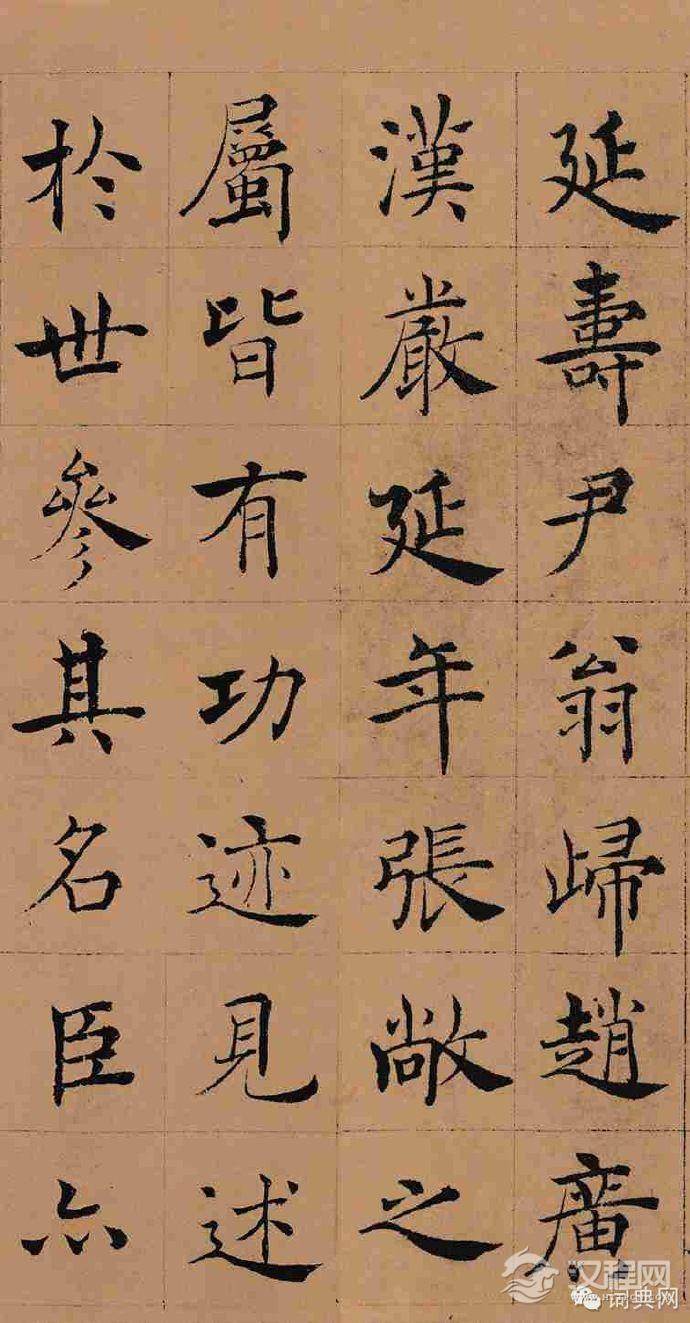 延壽尹翁歸趙廣
漢嚴延年張敞之
屬皆有功迹見述
於世參其名臣亦
汉程网
词典网